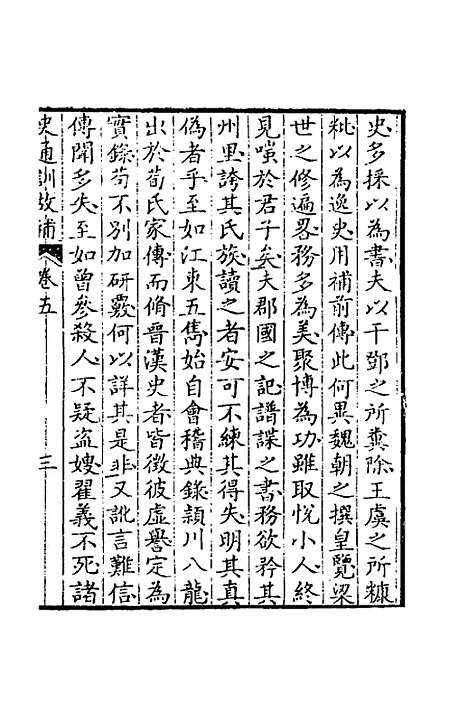 史多採以為書夫以干鄧之所糞除王虞之所糠
粃以為逸史用補前傳此何異魏朝之撰皇覽梁
世之修遍畧務多為美聚博為功雖取悅小人終
見嗤於君子矣夫郡國之記譜諜之書務欲矜其
州里誇其氏族讀之者安可不練其得失明其真
偽者乎至如江東五雋始自會稽典錄潁川八龍
出於荀氏家傳而脩晉漢史者皆徵彼虛譽定為
實錄苟不別加研覈何以詳其是非又訛言難信
傳聞多失至如曾參殺人不疑盜嫂翟義不死諸
史通訓故補 卷五 三